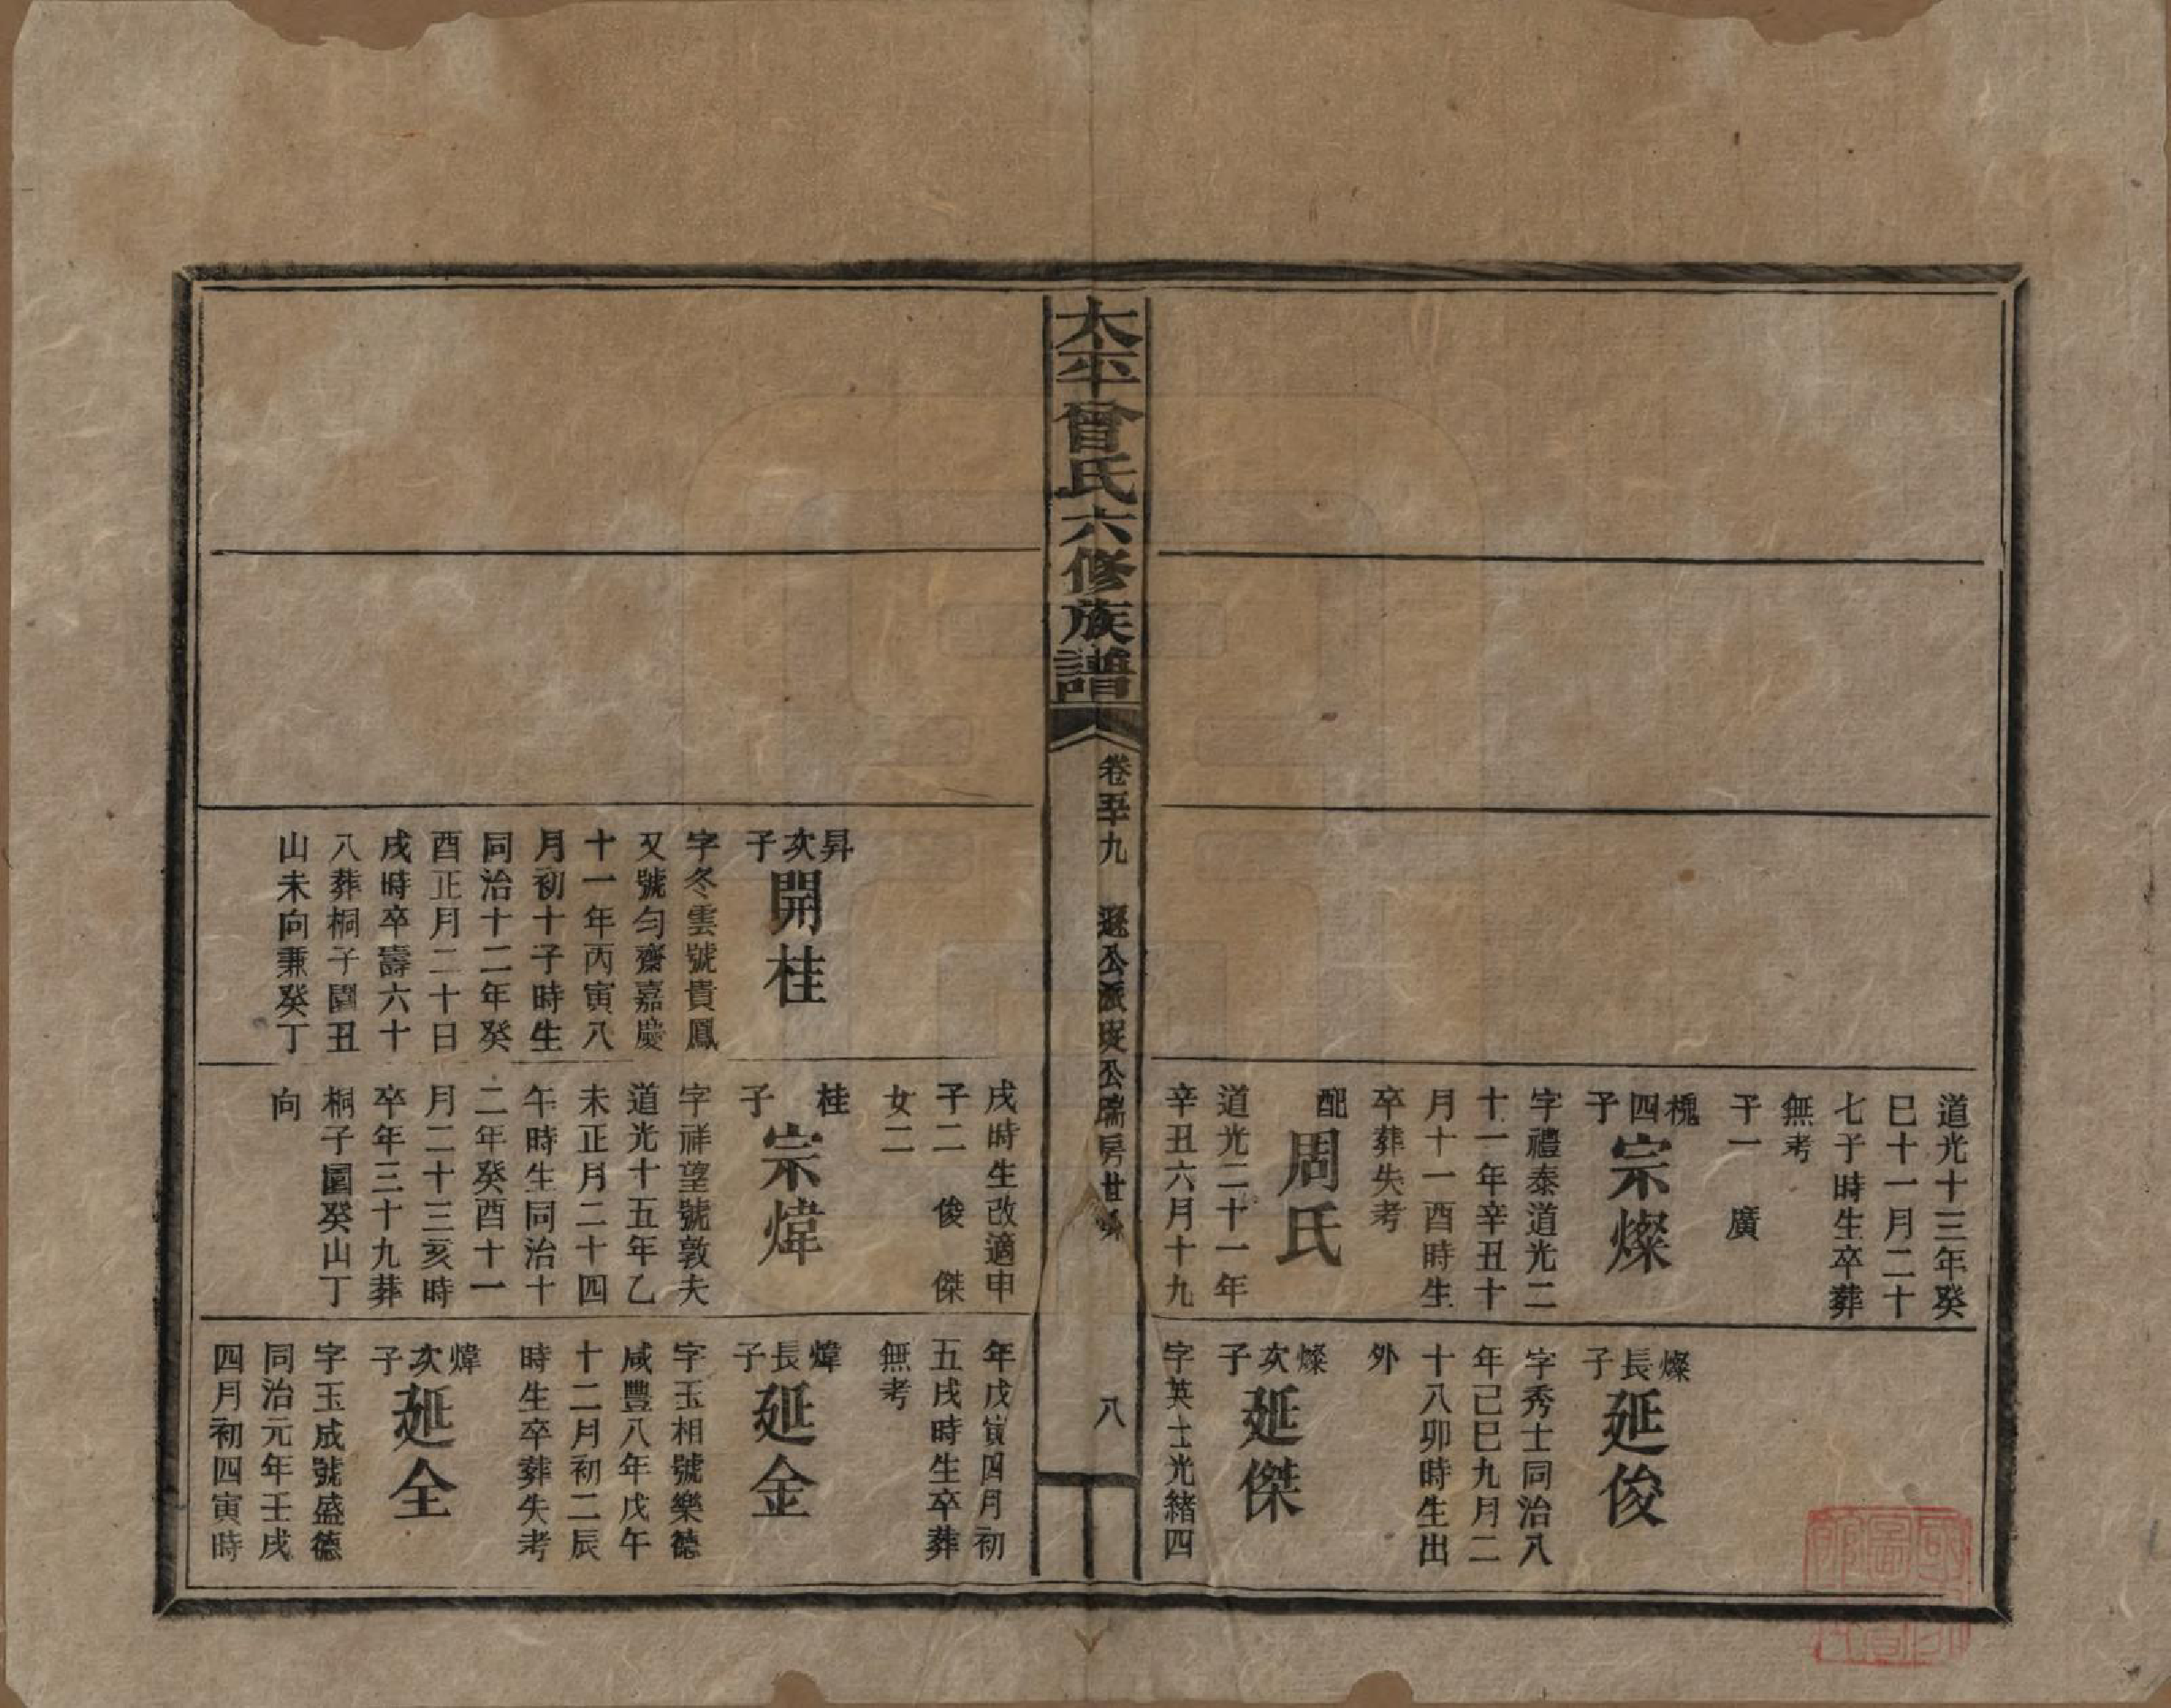 道光十三年癸
巳十一月二十
七子時生卒葬
無考
子一　廣
槐四子
宗燦
字禮泰道光二
十一年辛丑十
月十一酉時生
卒葬失考
配
周氏
道光二十一年
辛丑六月十九
燦長子
延俊
字秀士同治八
年己巳九月二
十八卯時生出
外
燦次子
延傑
字英士光緒四
太平曾氏六修族譜
卷五十九
公派
公瑞房廿
八
昇次子
開桂
字冬雲號貴鳳
又號勻齋嘉慶
十一年丙寅八
月初十子時生
同治十二年癸
酉正月二十日
戌時卒壽六十
八葬桐子園丑
山未向兼癸丁
戌時生改適申
子二　俊　傑
女二
桂子
宗煒
字祥望號敦夫
道光十五年乙
未正月二十四
午時生同治十
二年癸酉十一
月二十三亥時
卒年三十九葬
桐子園癸山丁
向
年戊寅四月初
五戌時生卒葬
無考
煒長子
延金
字玉相號樂德
咸豐八年戊午
十二月初二辰
時生卒葬失考
煒次子
延全
字玉成號盛德
同治元年壬戌
四月初四寅時